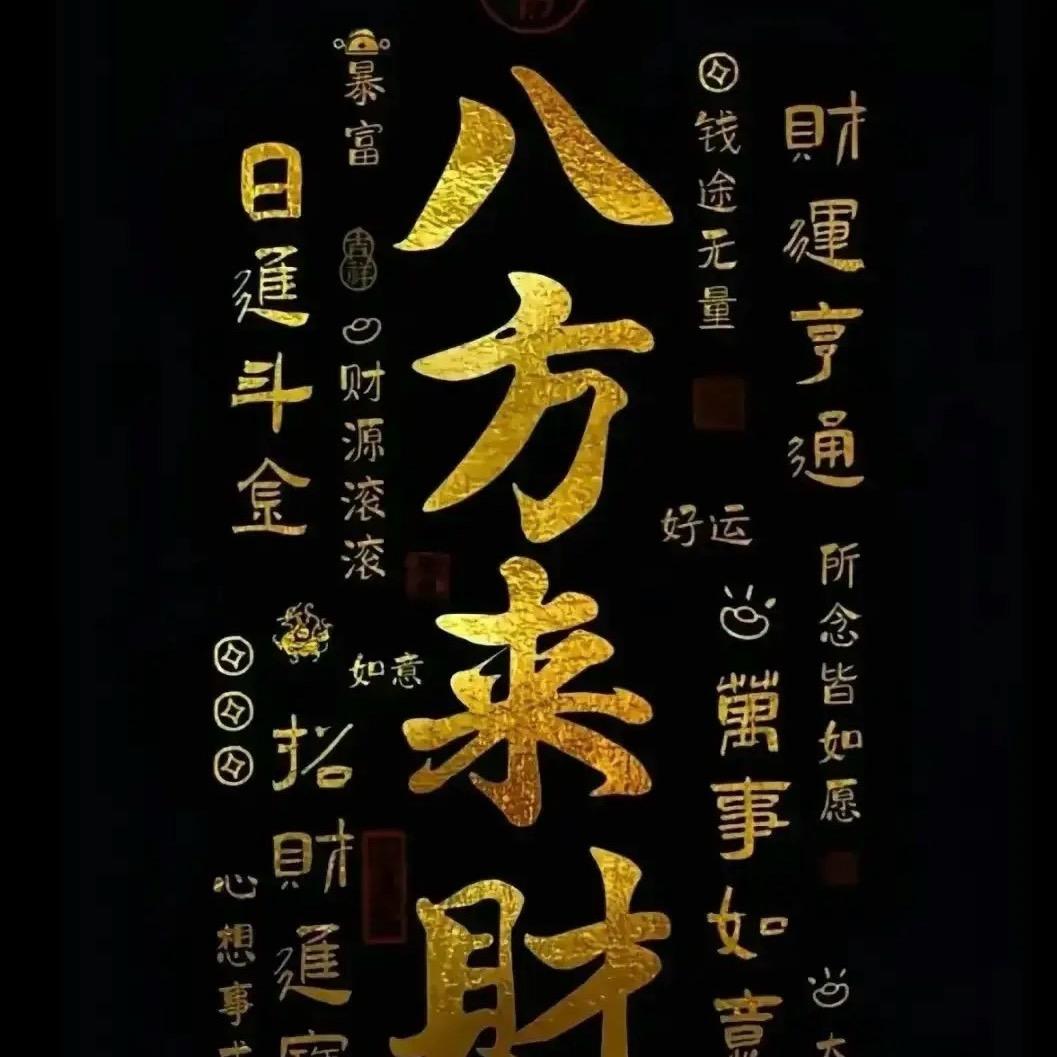 財運亨通
所念皆如愿
钱途无量
好运
萬事如意
八方来財
暴富
吉祥
财源滚滚
如意
日進斗金
招財進寶
心想事成